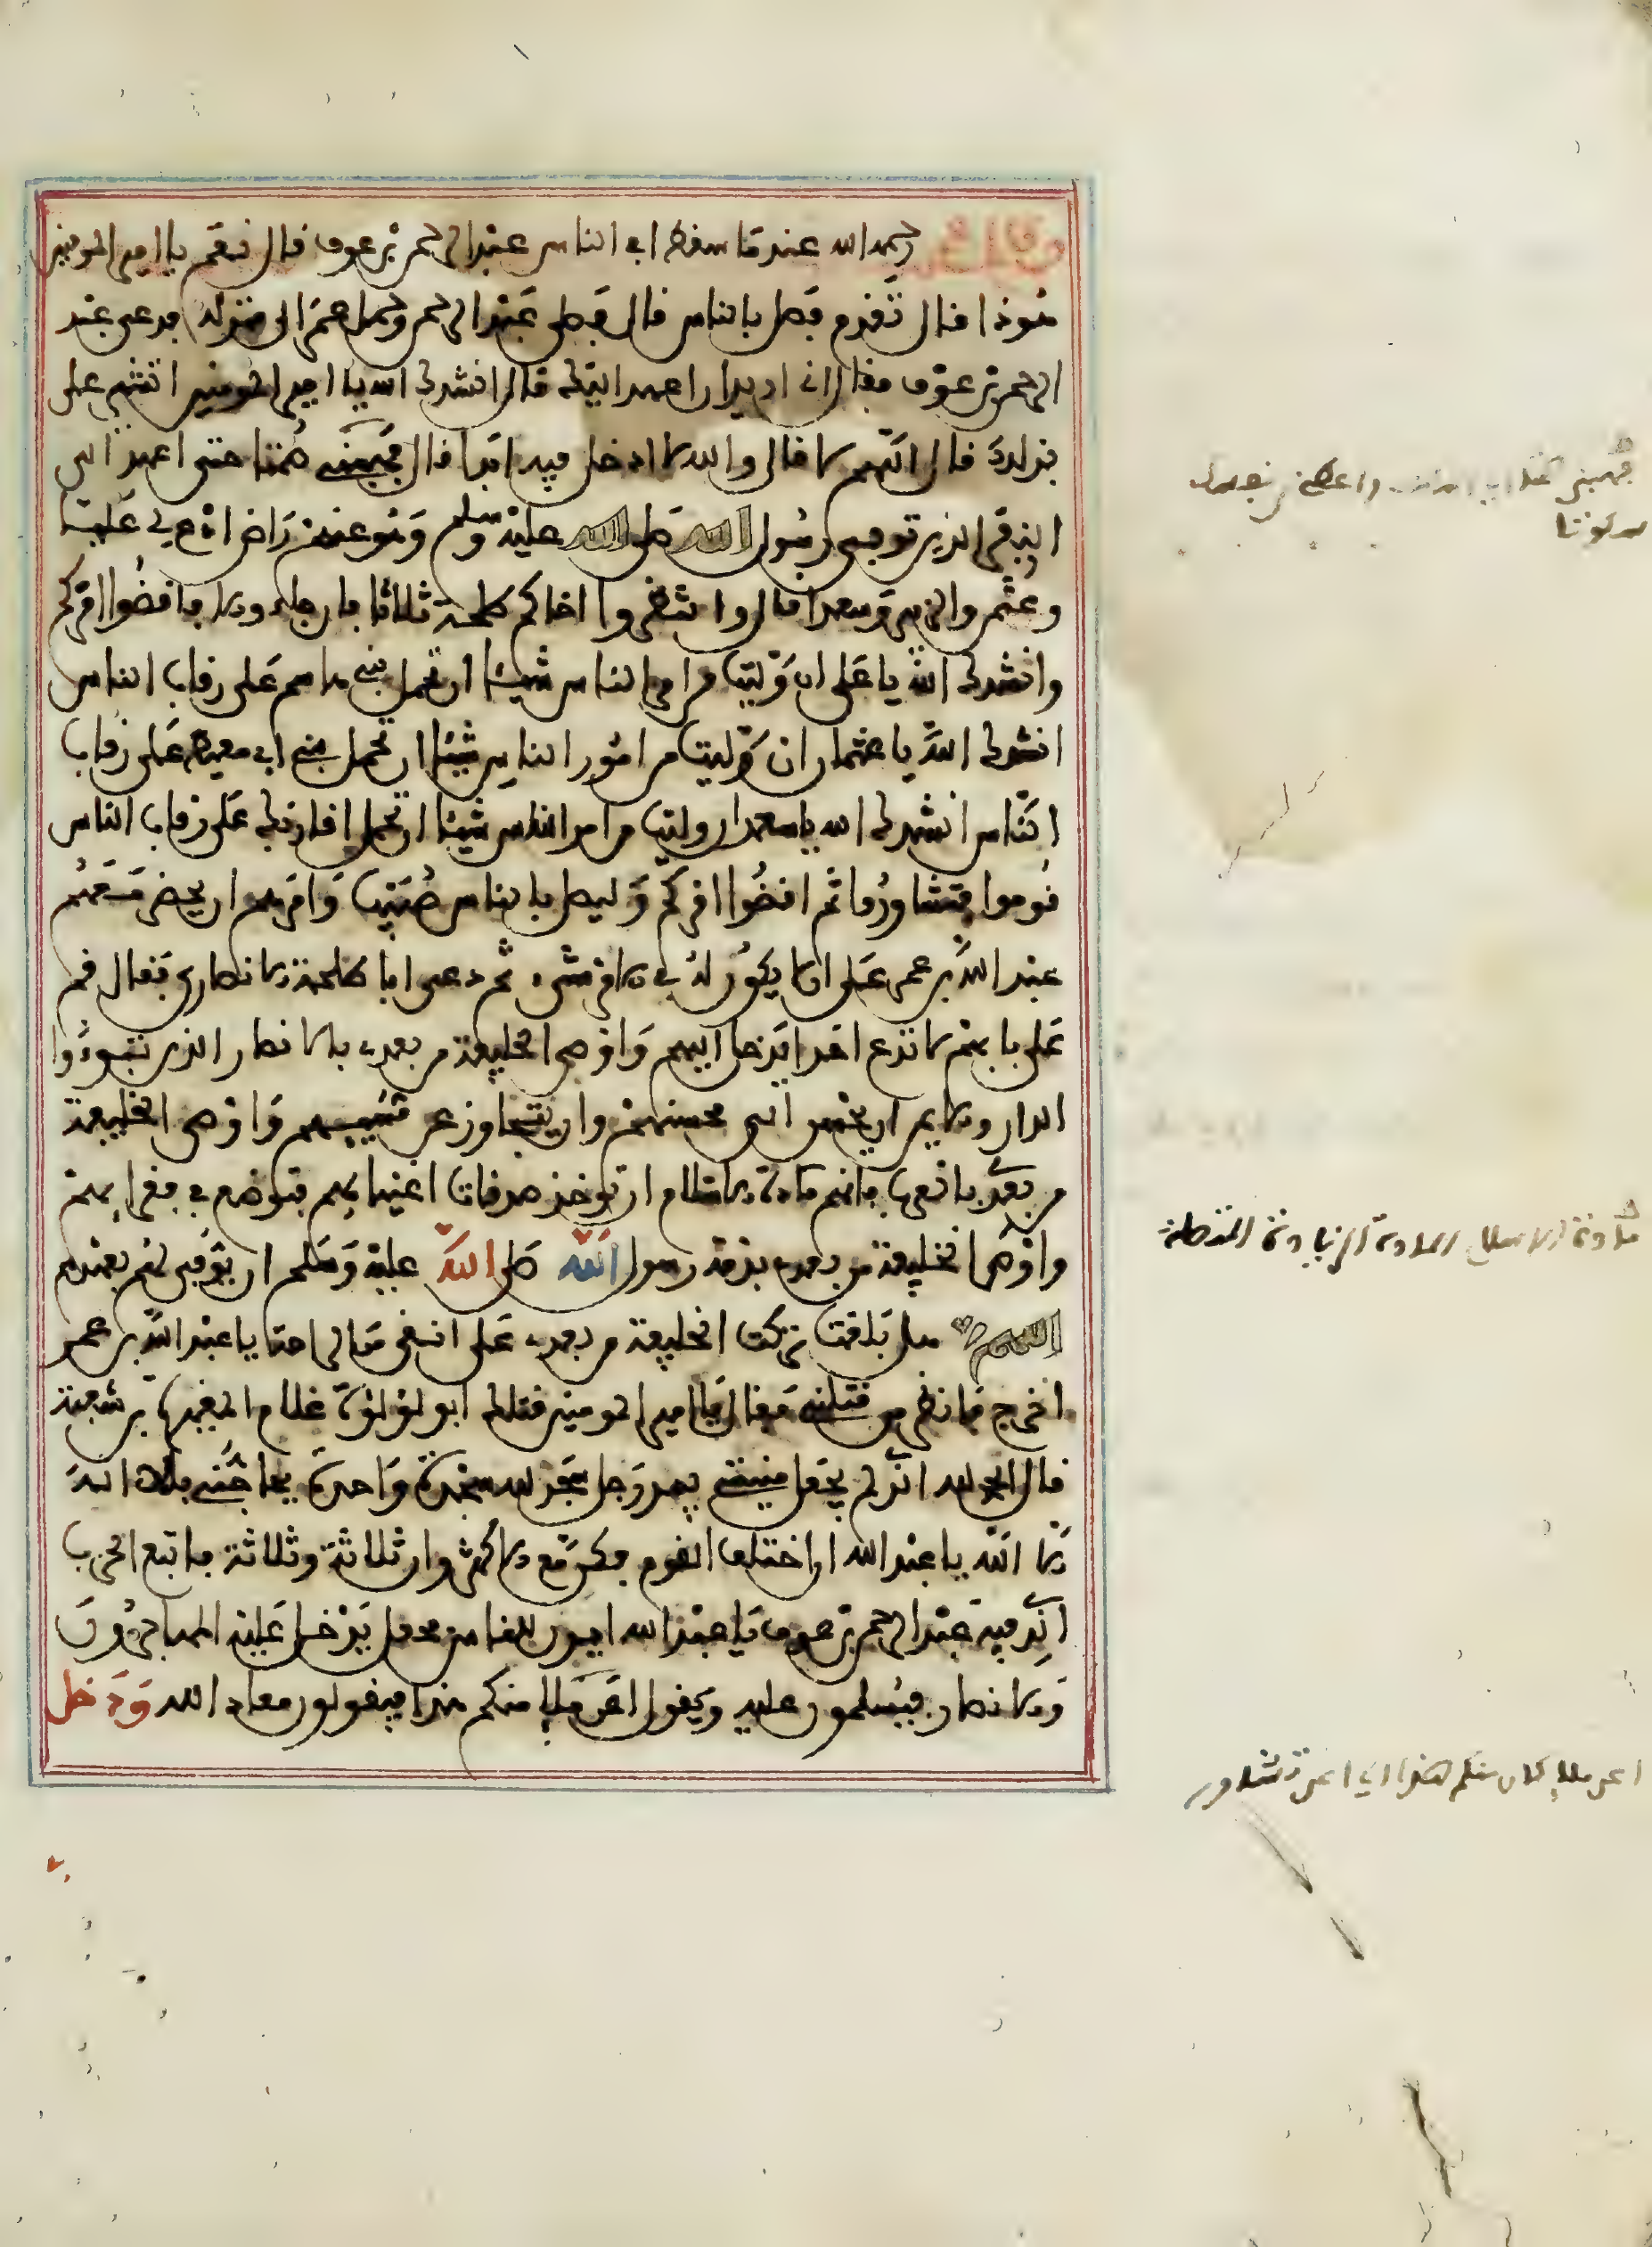 وقال عمر رحمه الله عندما سقط ابي الناس عبد الرحمن بن عوف قال نعم يا امير المومنين
هوذا قال تقدم فصل بالناس قال فصلى عبد الرحمن وحمل عمر الى منزله فدعى عبد
الرحمن بن عوف فقال اني اريد ان اعهد اليك قال انشدك الله يا امير المومنين اتشير على
بذلك قال اللهم لا قال والله لا ادخل فيه ابدا قال فهبني صمتا حتى اعهد الى
النفر الذين توفي رسول الله صلى الله عليه وسلم وهو عنهم راض ادع لي عليا
وعثمن والزبير وسعدا قال وانتظروا اخاكم طلحة ثلاثا فان جاء والا فاقضوا امركم
وانشدك الله يا علي ان وليت من امر الناس شيئا ان تحمل بني هاشم على رقاب الناس
انشدك الله يا عثمان ان وليت من امور الناس شيئا ان تحمل بني ابي معيط على رقاب
الناس انشدك الله يا سعد ان وليت من امر الناس شيئا ان تحمل اقاربك على رقاب الناس
قوموا فتشاوروا ثم اقضوا امركم وليصل بالناس صهيب وامرهم ان يحضر معهم
عبد الله بن عمر على ان لا يكون له في الامر شيء ثم دعى ابا طلحة الانصاري فقال قم
على بابهم لا تدع احدا يدخل اليهم واوصي الخليفة من بعدي بالانصار الذين تبوءوا
الدار والايمن ان يحسن الى محسنهم وان يتجاوز عن مسيئهم واوصي الخليفة
من بعدي بالعرب فانهم مادة الاسلام ان توخذ صدقات اغنيائهم فتوضع في فقرائهم
واوصي الخليفة من بعدي بذمة رسول الله صلى الله عليه وسلم ان يوفى لهم بعهدهم
اللهم هل بلغت تركت الخليفة من بعدي على انقى من الراحة يا عبد الله بن عمر
اخرج فانظر من قتلني فقال يا امير المومنين قتلك ابو لؤلؤة غلام المغيرة بن شعبة
قال الحمد لله الذي لم يجعل منيتي بيد رجل سجد لله سجدة واحدة يحاجني بلا اله
الا الله يا عبد الله ان اختلف القوم فكن مع الاكثر وان ثلاثة وثلاثة فاتبع الحزب
الذي فيه عبد الرحمن بن عوف يا عبد الله ايذن للناس فجعل يدخل عليه المهاجرون
والانصار فيسلمون عليه ويقول اعن ملإ منكم هذا فيقولون معاذ الله ودخل
فهبني
سكوتا
مادة الاسلام المادة الزيادة المتصلة
اعن ملإ كان منكم هذا اي اعن تشاور